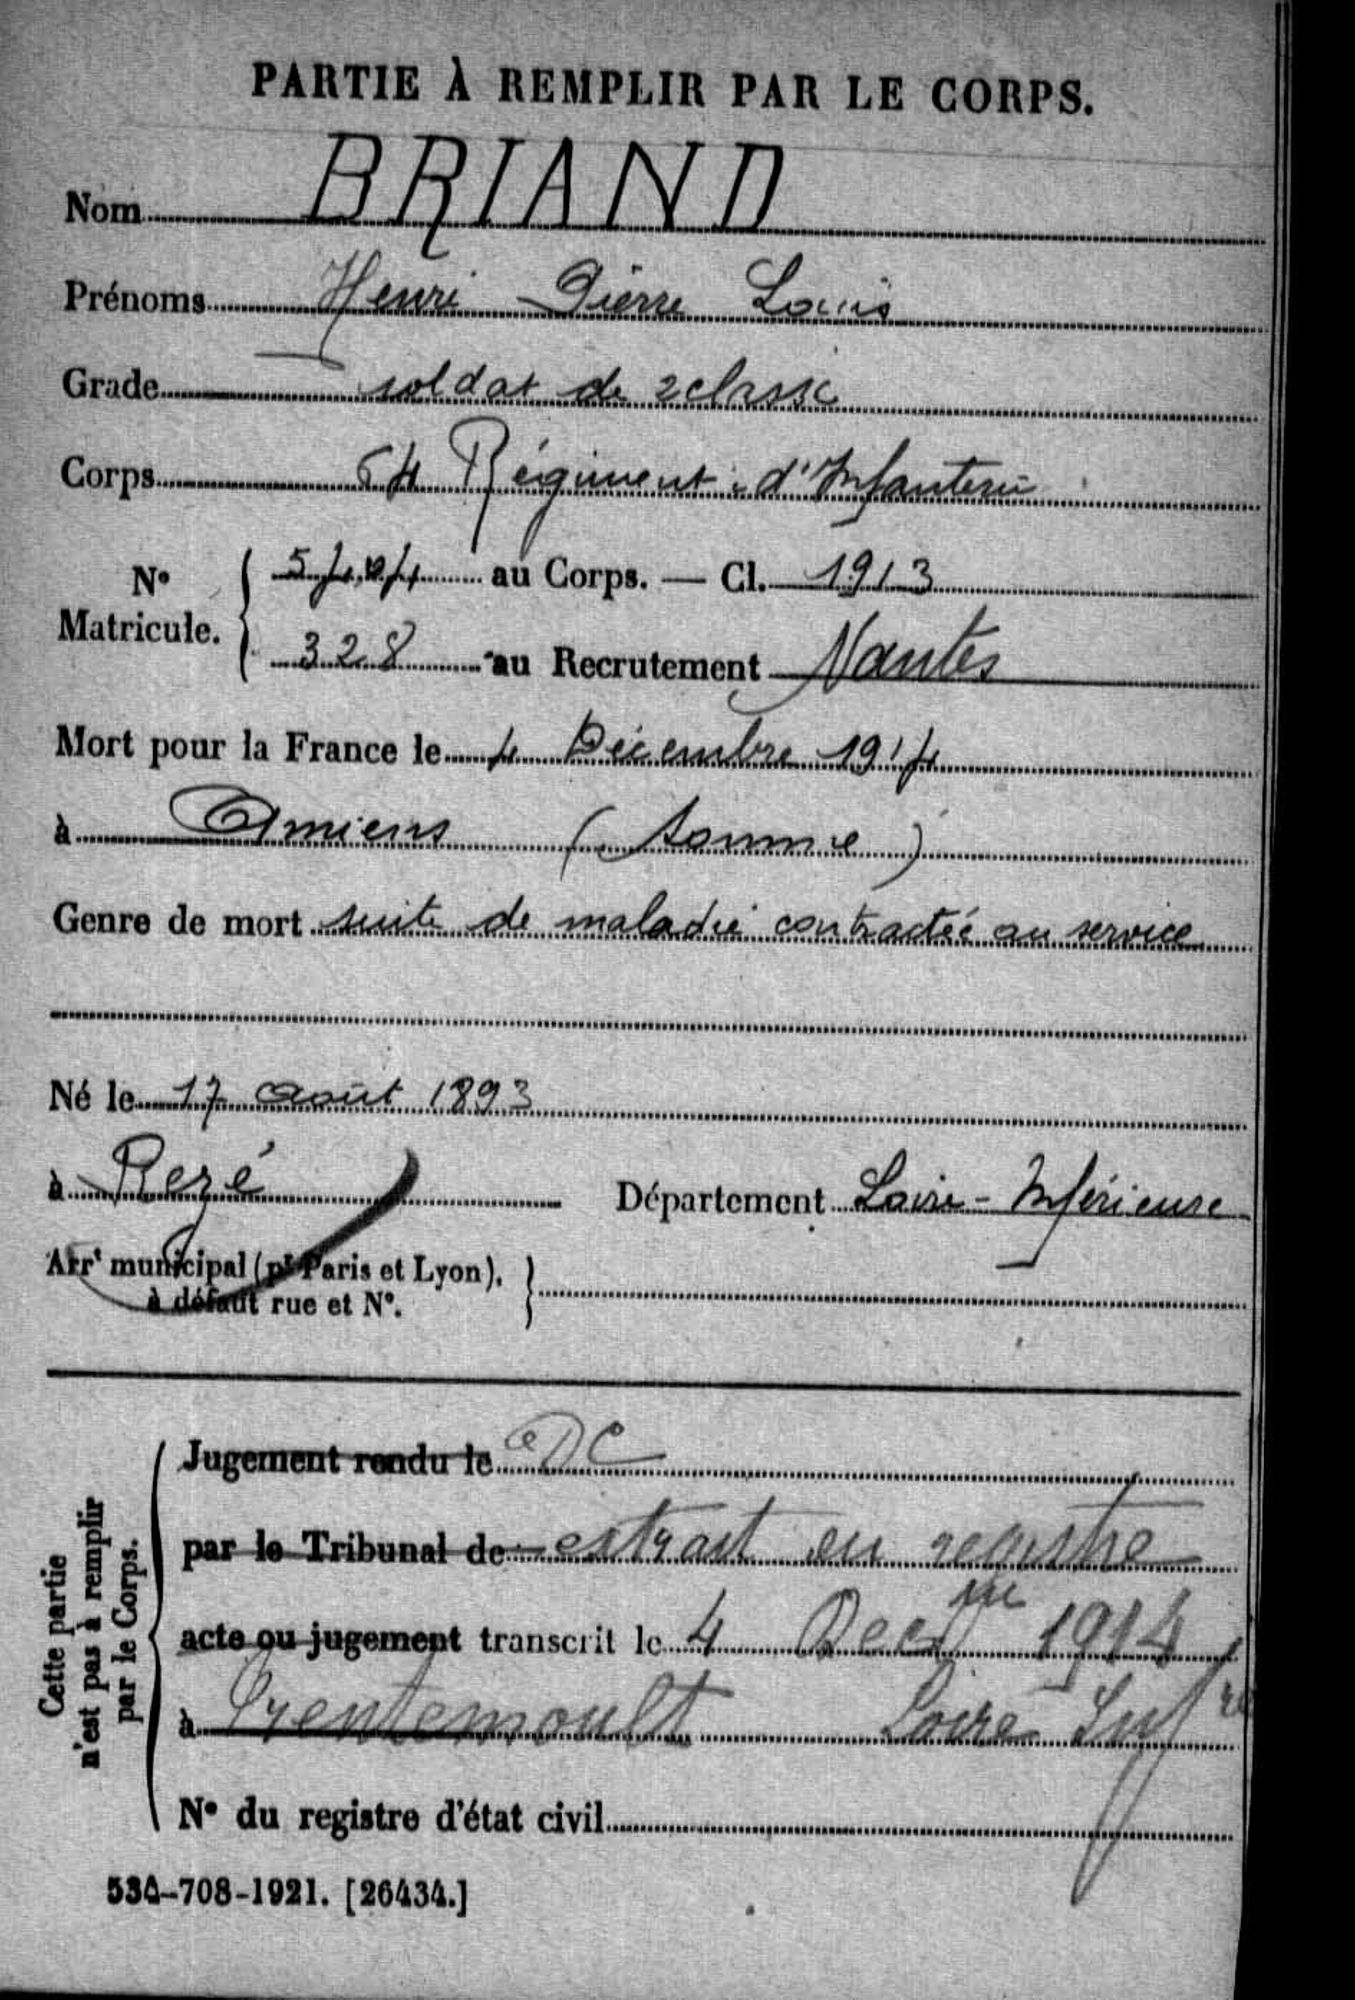 PARTIE À REMPLIR PAR LE CORPS.
Nom BRIAND
Prénoms Henri Pierre Louis
Grade soldat de 2 classe
Corps 64 Régiment d'Infanterie
N° Matricule. 5404 au Corps. — Cl. 1913
328 au Recrutement Nantes
Mort pour la France le 4 Décembre 1914
à Amiens (Somme)
Genre de mort suite de maladie contractée au service
Né le 17 août 1893
à Rezé Département Loire-Inférieure
Arrt municipal (pr Paris et Lyon), à défaut rue et N°.
Cette partie n'est pas à remplir par le Corps.
Jugement rendu le DC
par le Tribunal de extrait du registre
acte ou jugement transcrit le 4 Decbre 1914
à Trentemoult Loire Infre
N° du registre d'état civil
534-708-1921. [26434.]